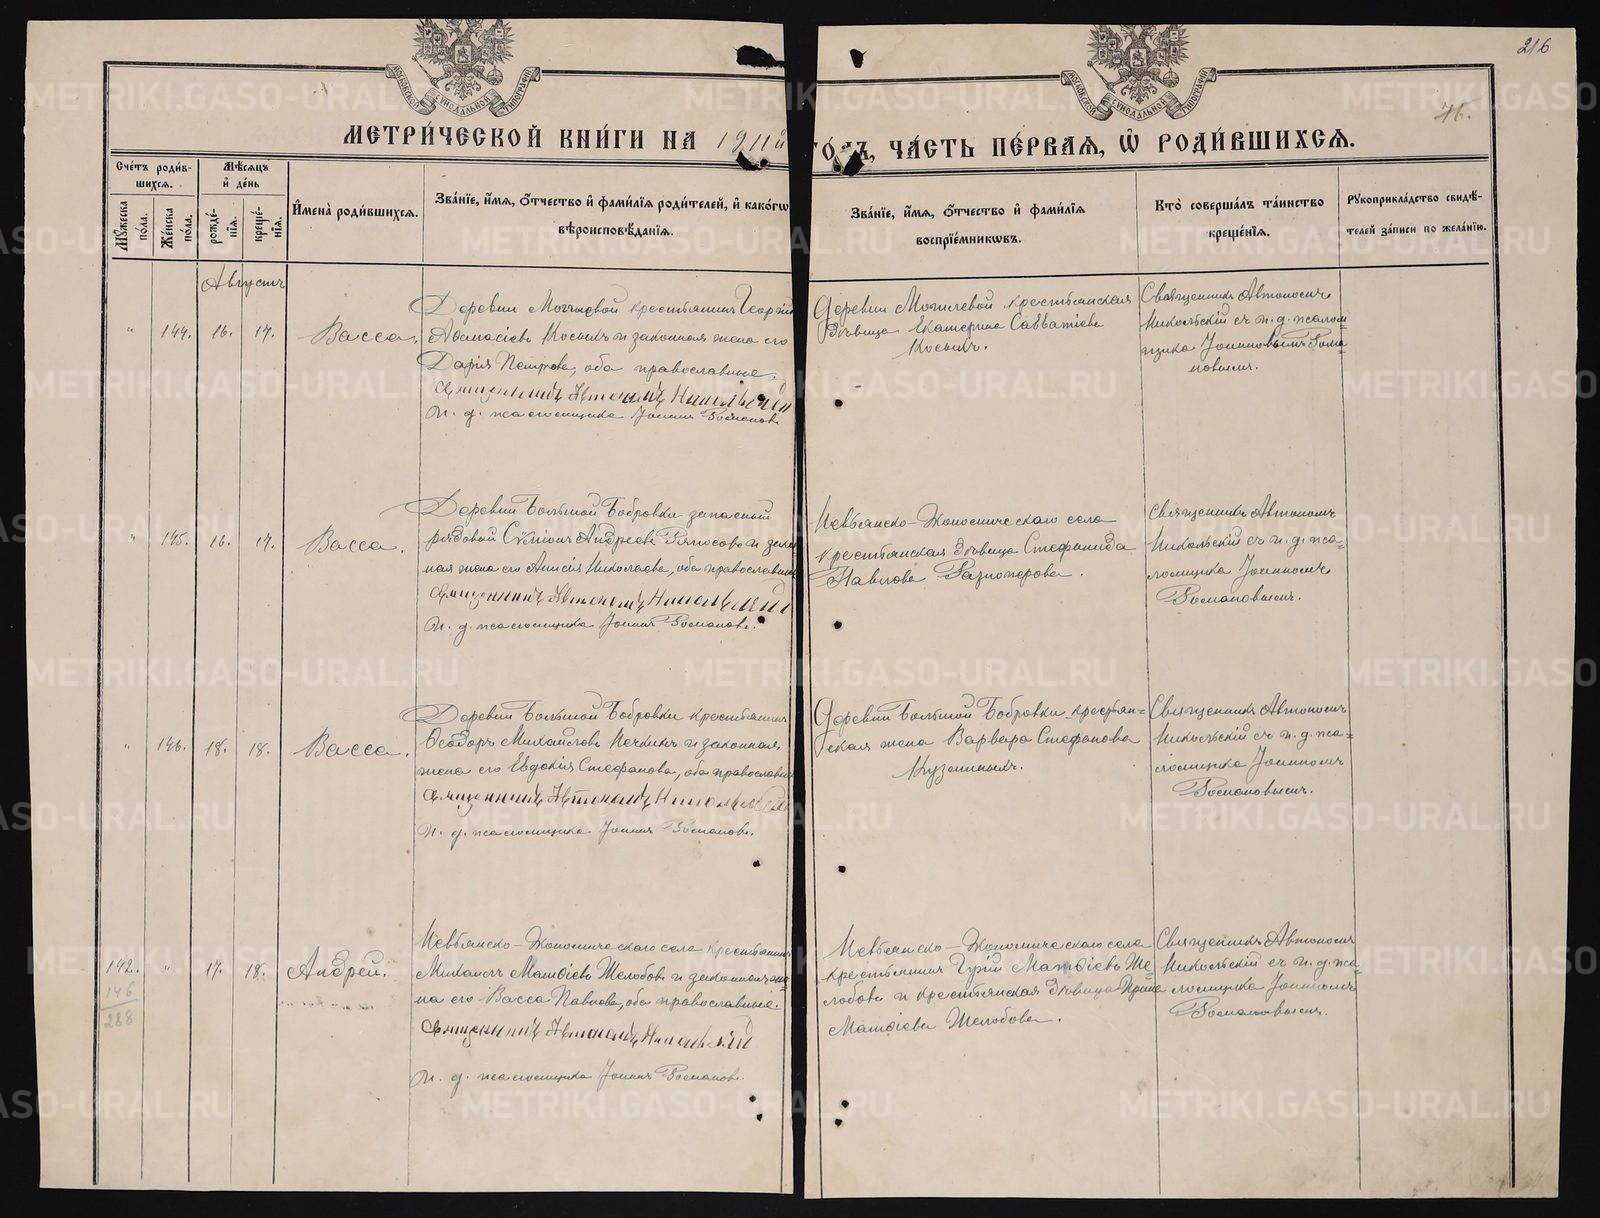 216
76.
МОСКОВСКОЙ СѴНОДАЛЬНОЙ ТИПОГРАФІИ
МОСКОВСКОЙ СѴНОДАЛЬНОЙ ТИПОГРАФІИ
МЕТРИ́ЧЕСКОЙ КНИ́ГИ НА 1911й
ГО́ДЪ, ЧА́СТЬ ПЕ́РВАѦ, Ѡ҆ РОДИ́ВШИХСѦ.
Сче́тъ роди́в-
шихсѧ.
Мꙋ́жеска по́ла.
Же́нска по́ла.
Мѣ́сѧцъ
и҆ де́нь
рожде́-нїѧ.
креще́-нїѧ.
И҆мена̀ роди́вшихсѧ.
Зва́нїе, и҆́мѧ, ѻ҆́тчество и҆ фами́лїѧ роди́телей, и҆ како́гѡ
вѣроисповѣ́данїѧ.
Зва́нїе, и҆́мѧ, ѻ҆́тчество и҆ фами́лїѧ
воспрїе́мникѡвъ.
Кто̀ соверша́лъ та́инство
креще́нїѧ.
Рꙋкоприкла́дство свидѣ́-
телей за́писи по жела́нїю.
Августъ
" 144. 16. 17. Васса.
Деревни Могилевой крестьянинъ Георгій
Аѳанасіевъ Косыхъ и законная жена его
Дарія Петрова, оба православные.
Священникъ Автономъ Никольскій
И. д. псаломщика Іоаннъ Романовъ
Деревни Могилевой крестьянская
дѣвица Екатерина Савватіева
Косыхъ.
Священникъ Автономъ
Никольскій съ и. д. псалом-
щика Іоанномъ Рома-
новымъ.
" 145. 16. 17. Васса.
Деревни Большой Бобровки запасный
рядовой Сѵмеонъ Андреевъ Ряпосовъ и закон
ная жена его Анисія Николаева, оба православные
Священникъ Автономъ Никольскій
И. д. псаломщика Іоаннъ Романовъ.
Невьянско-Экономическаго села
крестьянская дѣвица Стефанида
Павлова Разноперова.
Священникъ Автономъ
Никольскій съ и. д. пса-
ломщика Іоанномъ
Романовымъ.
" 146. 18. 18. Васса.
Деревни Большой Бобровки крестьянинъ
Ѳеодоръ Михайловъ Печкинъ и законная
жена его Евдокія Стефанова, оба православные
Священникъ Автономъ Никольскій
И. д. псаломщика Іоаннъ Романовъ.
Деревни Большой Бобровки крестьян=
ская жена Варвара Стефанова
Кузьминыхъ.
Священникъ Автономъ
Никольскій съ и. д. пса=
ломщика Іоанномъ
Романовымъ.
142. " 17. 18. Андрей.
146
288
Невьянско-Экономическаго села крестьянинъ
Михаилъ Матѳіевъ Желобовъ и законная же-
на его Васса Павлова, оба православные.
Священникъ Автономъ Никольскій
И. д. псаломщика Іоаннъ Романовъ.
Невьянско-Экономическаго села
крестьянинъ Гурій Матѳіевъ Же=
лобовъ и крестьянская дѣвица Ирина
Матѳіева Желобова.
Священникъ Автономъ
Никольскій съ и. д. пса=
ломщика Іоанномъ
Романовымъ.
METRIKI.GASO-URAL.RU